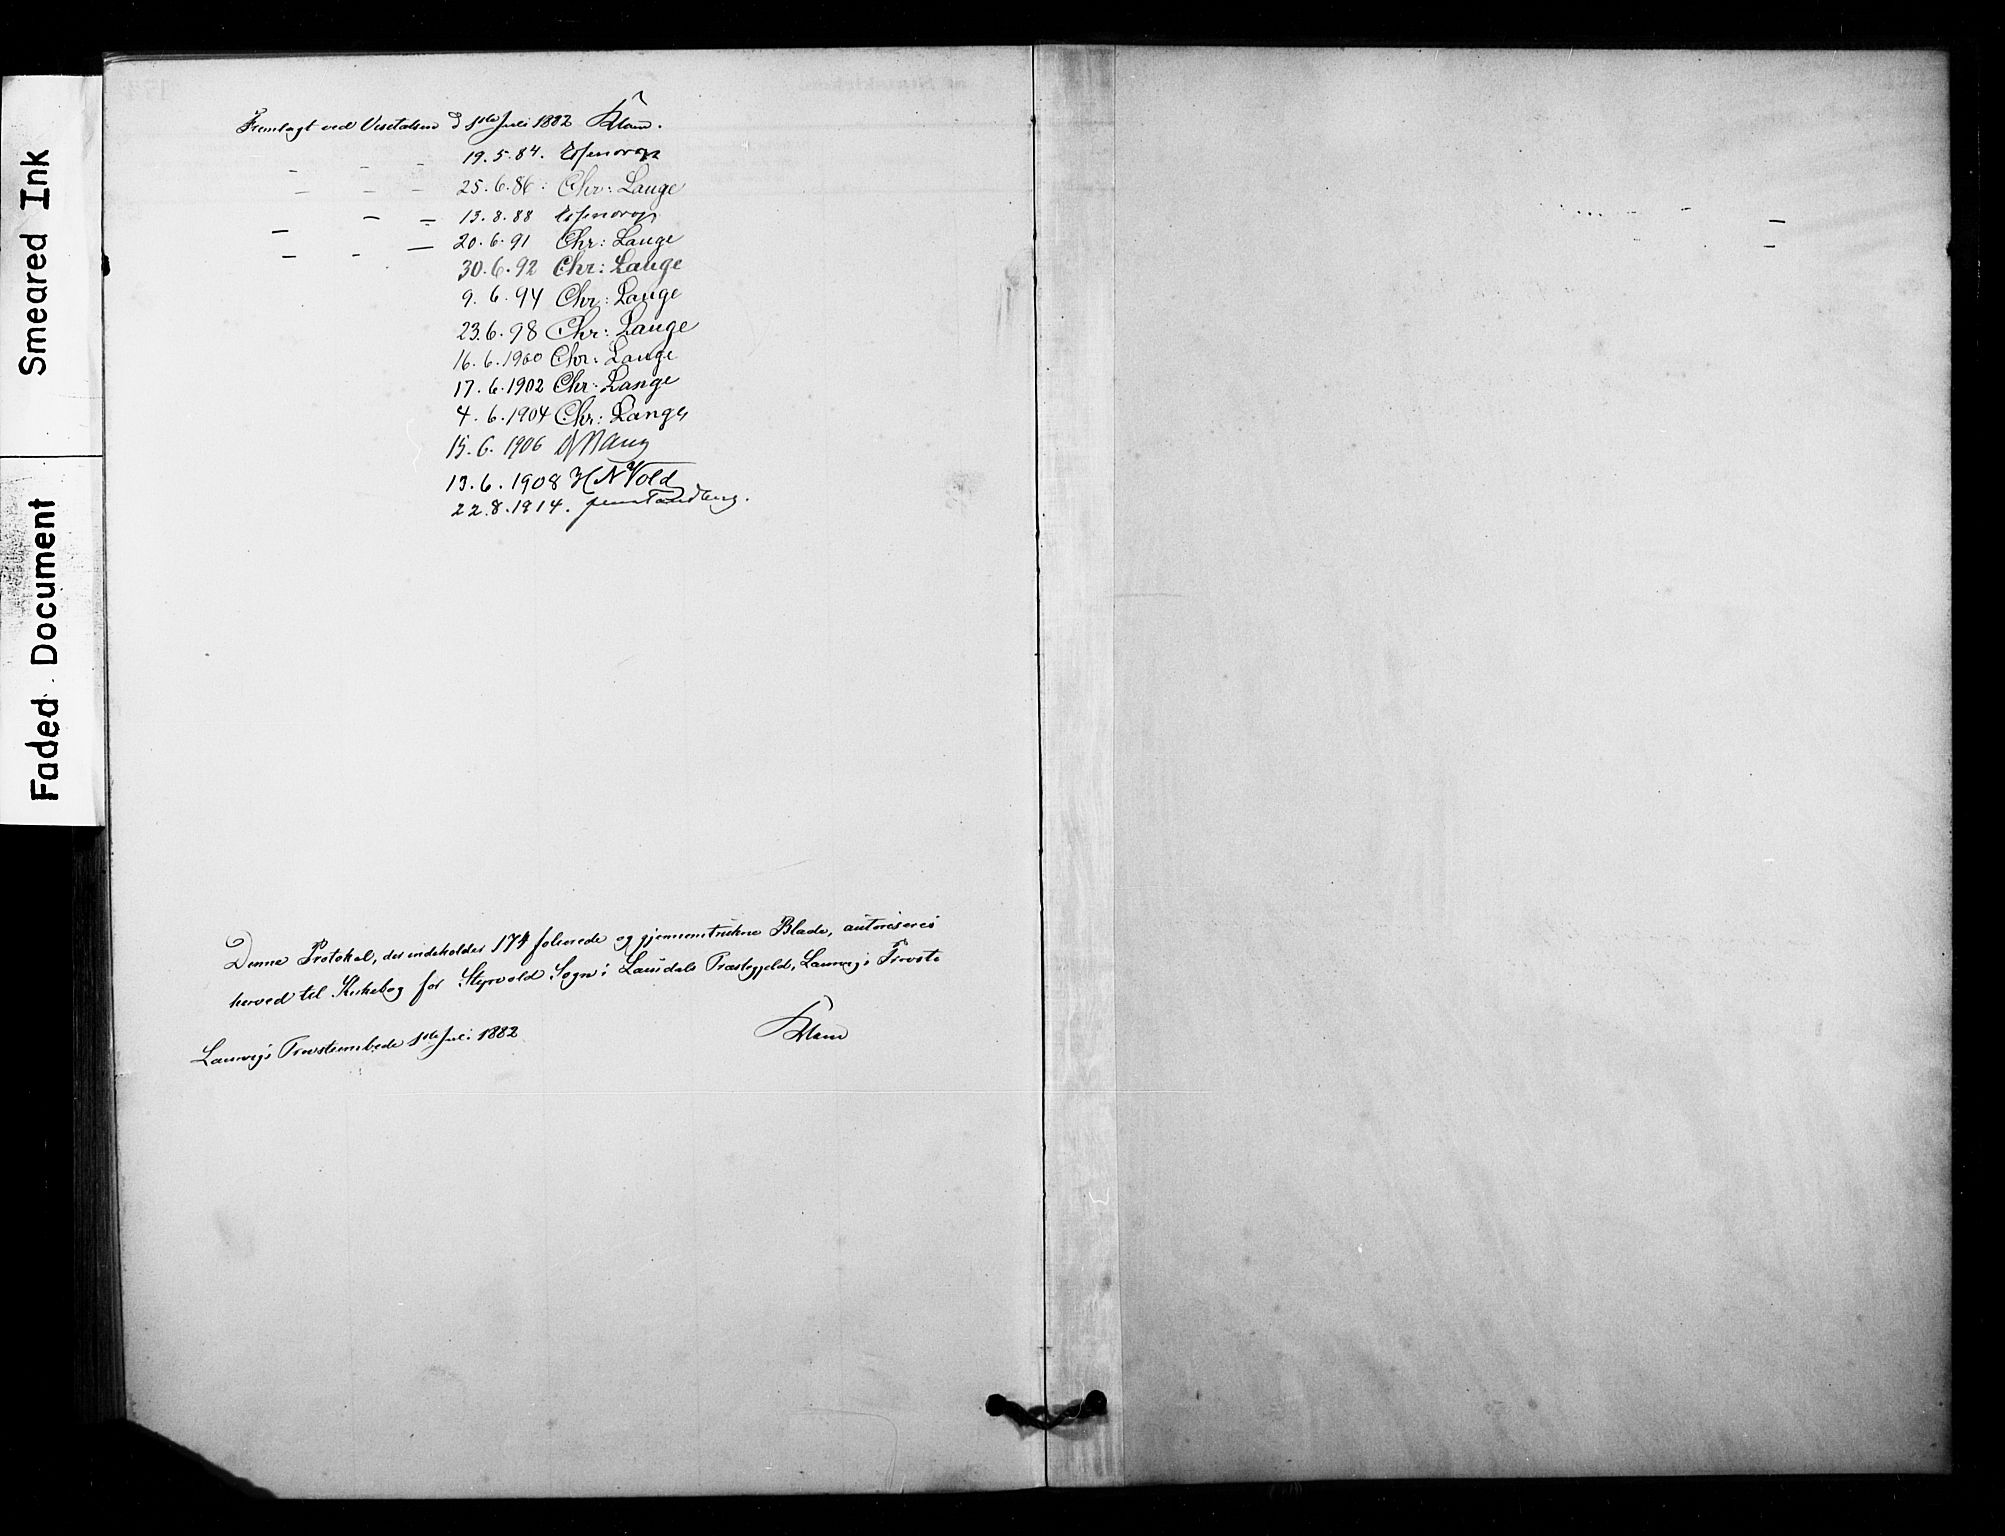 Smeared Ink
Faded Document
Fremlagt ved Visitatsen d 1ste Juli 1882
19.5.84. Essendrop
25.6.86: Chr: Lange
13.8.88 Essendrop
20.6.91 Chr: Lange
30.6.92 Chr: Lange
9.6.94 Chr: Lange
23.6.98 Chr: Lange
16.6.1900 Chr: Lange
17.6.1902 Chr: Lange
4.6.1904 Chr: Lange
15.6.1906
13.6.1908 H N Vold
22.8.1914. Jens Tandberg.
Denne Protokol, der indeholder 174 folierede og gjennemtrukne Blade, autoriseres
herved til Kirkebog for Styrvold Sogn i Laurdals Præstegjeld, Laurvigs Provsti
Laurvigs Provstiembede 1ste Juli 1882